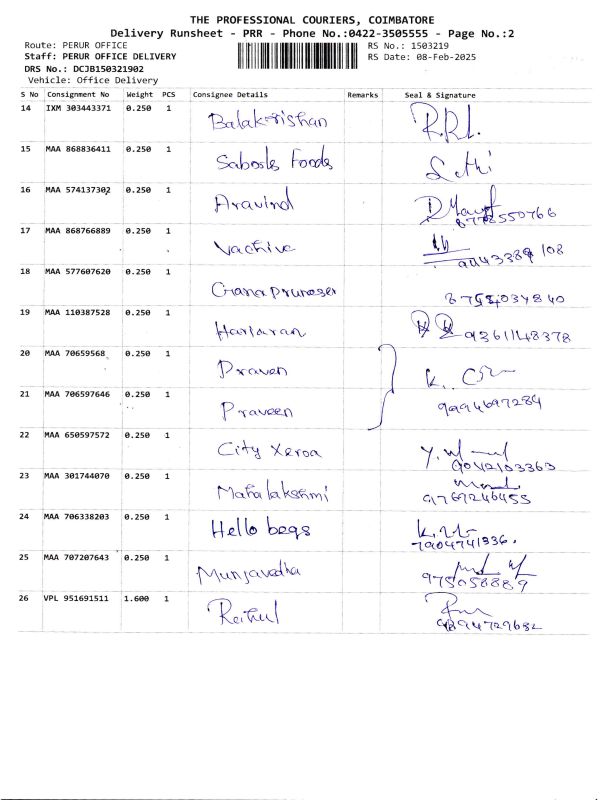 THE PROFESSIONAL COURIERS, COIMBATORE
Delivery Runsheet - PRR - Phone No.:0422-3505555 - Page No.:2
Route: PERUR OFFICE RS No.: 1503219
Staff: PERUR OFFICE DELIVERY RS Date: 08-Feb-2025
DRS No.: DCJB150321902
Vehicle: Office Delivery
S No Consignment No Weight PCS Consignee Details Remarks Seal & Signature
14 IXM 303443371 0.250 1 Balakrishan
15 MAA 868836411 0.250 1 Sabosls Foods Sethi
16 MAA 574137302 0.250 1 Aravind
8778550766
17 MAA 868766889 0.250 1 Vachive
108
18 MAA 577607620 0.250 1
19 MAA 110387528 0.250 1 Hariaran 9361148378
20 MAA 70659568 0.250 1 Praven
21 MAA 706597646 0.250 1 Praveen 9994697284
22 MAA 650597572 0.250 1 City Xeroa
9042103363
23 MAA 301744070 0.250 1 Mahalakshmi
9769246455
24 MAA 706338203 0.250 1 Hello begs
7904741336.
25 MAA 707207643 0.250 1 Munjavedha
975058889
26 VPL 951691511 1.600 1 Reihul
94729682